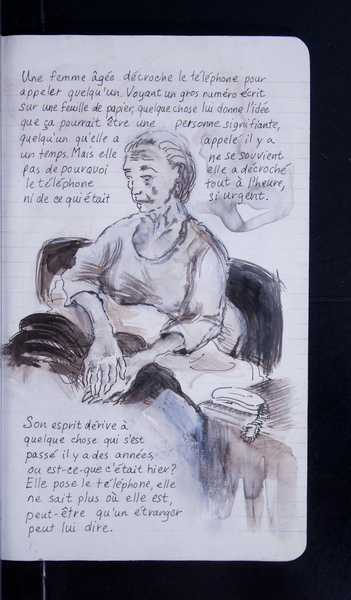 Une femme âgée décroche le téléphone pour
appeler quelqu'un. Voyant un gros numéro écrit
sur une feuille de papier, quelque chose lui donne l'idée
que ça pourrait être une personne signifiante,
quelqu'un qu'elle a appelé il y a
un temps. Mais elle ne se souvient
pas de pourquoi elle a décroché
le téléphone tout à l'heure,
ni de ce qui était si urgent.
Son esprit dérive à
quelque chose qui s'est
passé il y a des années,
ou est-ce-que c'était hier?
Elle pose le téléphone, elle
ne sait plus où elle est,
peut-être qu'un étranger
peut lui dire.